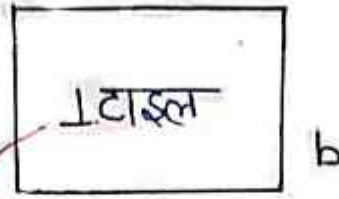 1 टाइल
b